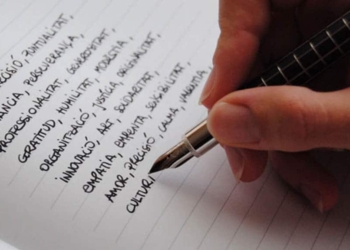 PUNTUALITAT,
PERSEVERANÇA,
PROFESSIONALITAT, GENEROSITAT,
GRATITUD, HUMILITAT,
ORGANITZACIÓ, JUSTÍCIA, ORIGINALITAT,
INNOVACIÓ, ART, SOLIDARITAT,
EMPATIA, EMPENTA, SENSIBILITAT,
AMOR, PRECISIÓ, CALMA, VALENTIA
CULTUR